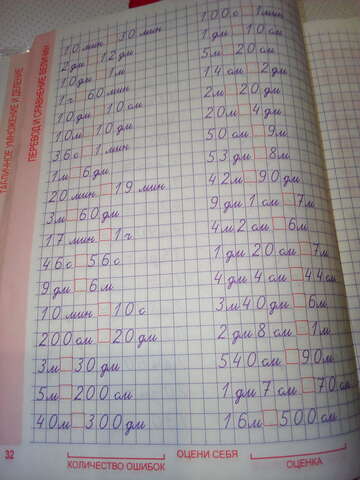 ТАБЛИЧНОЕ УМНОЖЕНИЕ И ДЕЛЕНИЕ
ПЕРЕВОД И СРАВНЕНИЕ ВЕЛИЧИН
10 мин □ 10 мин
2 дм □ 12 дм
10 дм □ 1 м
1 ч □ 60 мин
10 дм □ 10 см
10 м □ 10 дм
36 с □ 1 мин
1 м □ 6 дм
20 мин □ 19 мин
3 м □ 60 дм
17 мин □ 1 ч
46 с □ 56 с
9 дм □ 6 м
10 мин □ 10 с
200 см □ 20 дм
3 м □ 30 дм
5 м □ 200 см
40 м □ 300 дм
100 с □ 1 мин
1 дм □ 10 см
5 м □ 20 см
14 см □ 2 дм
2 м □ 20 дм
20 м □ 4 дм
50 см □ 9 м
53 дм □ 8 м
42 м □ 90 дм
9 дм 1 см □ 7 м
4 м 2 см □ 6 м
1 дм 20 см □ 7 м
4 дм 4 см □ 44 см
3 м 40 дм □ 6 м
2 дм 8 см □ 1 м
540 см □ 90 м
1 дм 7 см □ 70 см
16 м □ 500 см
32
КОЛИЧЕСТВО ОШИБОК
ОЦЕНИ СЕБЯ
ОЦЕНКА